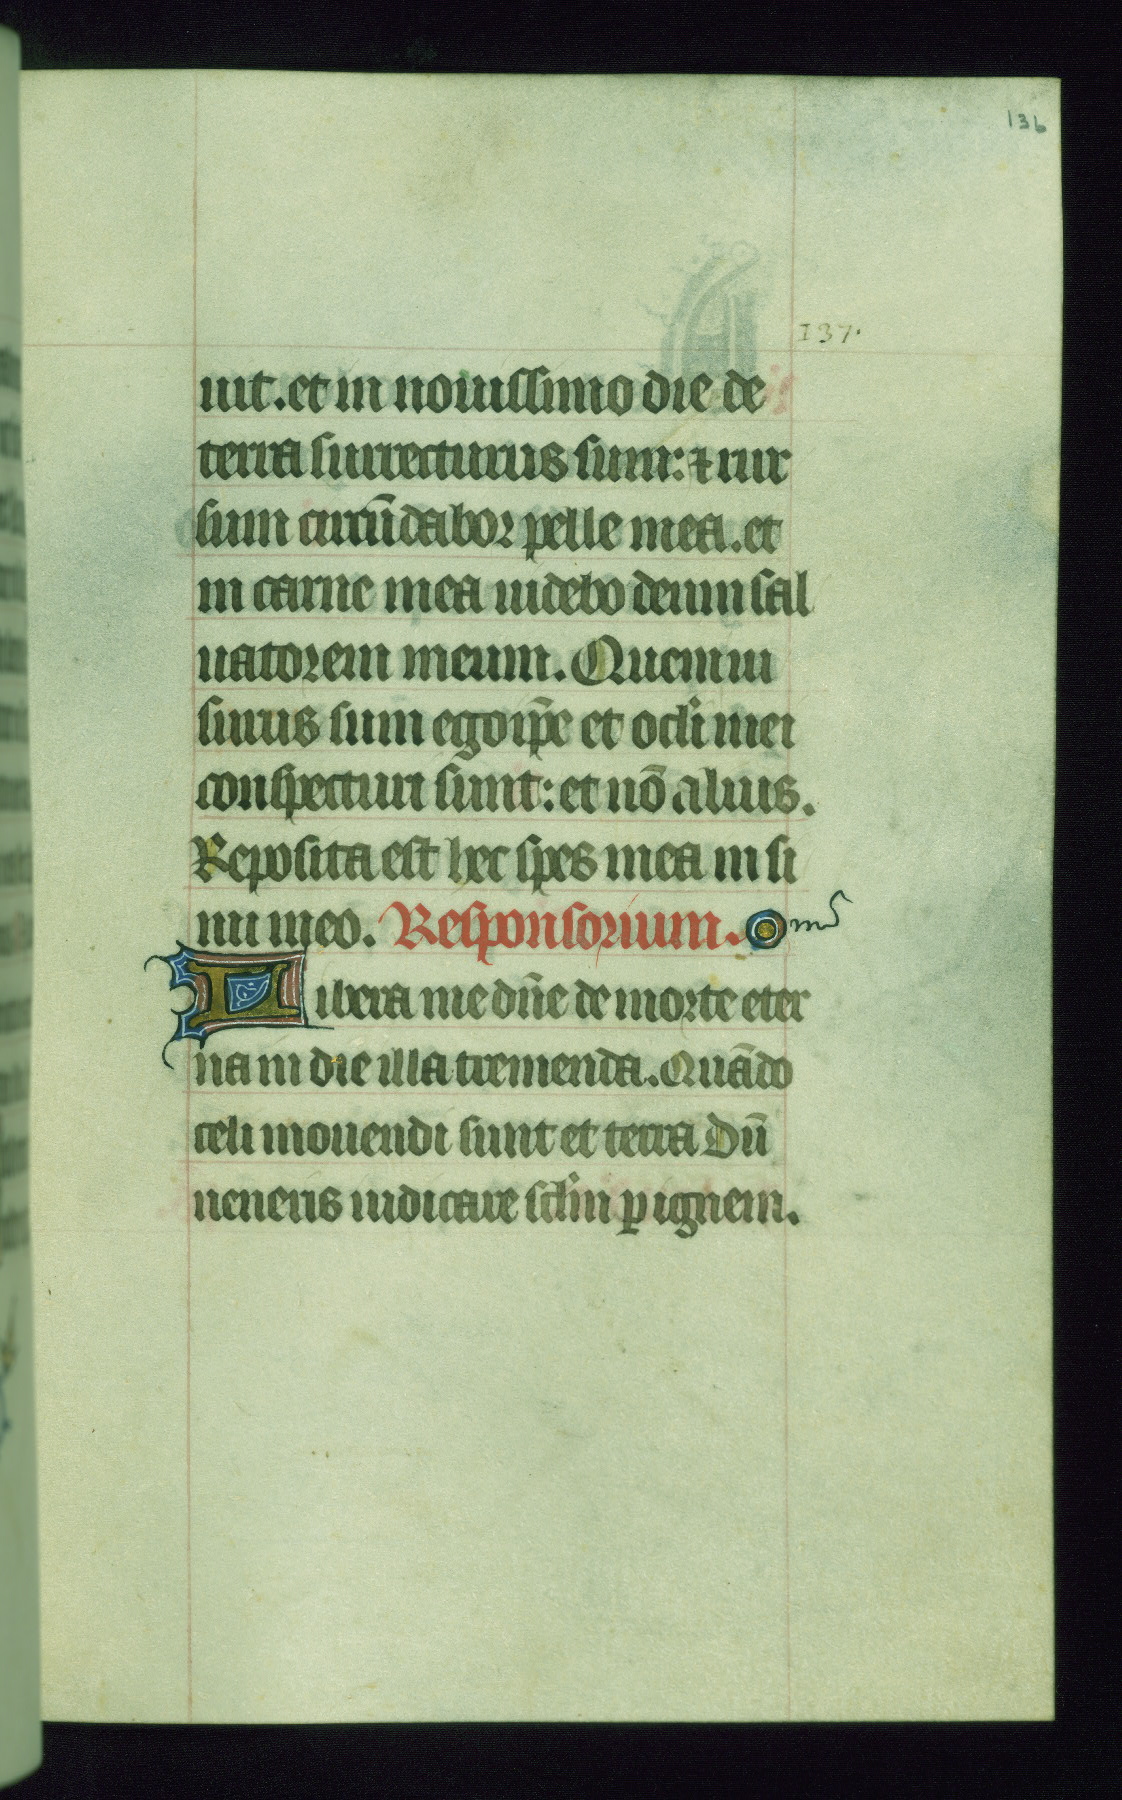 136
137.
uit. et in nouissimo die de
terra surrecturus sum: ⁊ rur
sum circūdabor pelle mea. et
in carne mea uidebo deum sal
uatorem meum. Quem ui
surus sum ego ip̄e et ocl̓i mei
conspecturi sunt: et nō alius.
Reposita est hec spes mea in si
nu meo. Responsorium.
Libera me dn̄e de morte eter
na in die illa tremenda. Quādo
celi mouendi sunt et terra Dū
ueneris iudicare scl̓m ꝑ ignem.